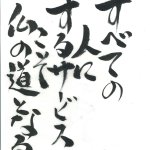 すべての
人に
するサービス
こそ
仏の道となる